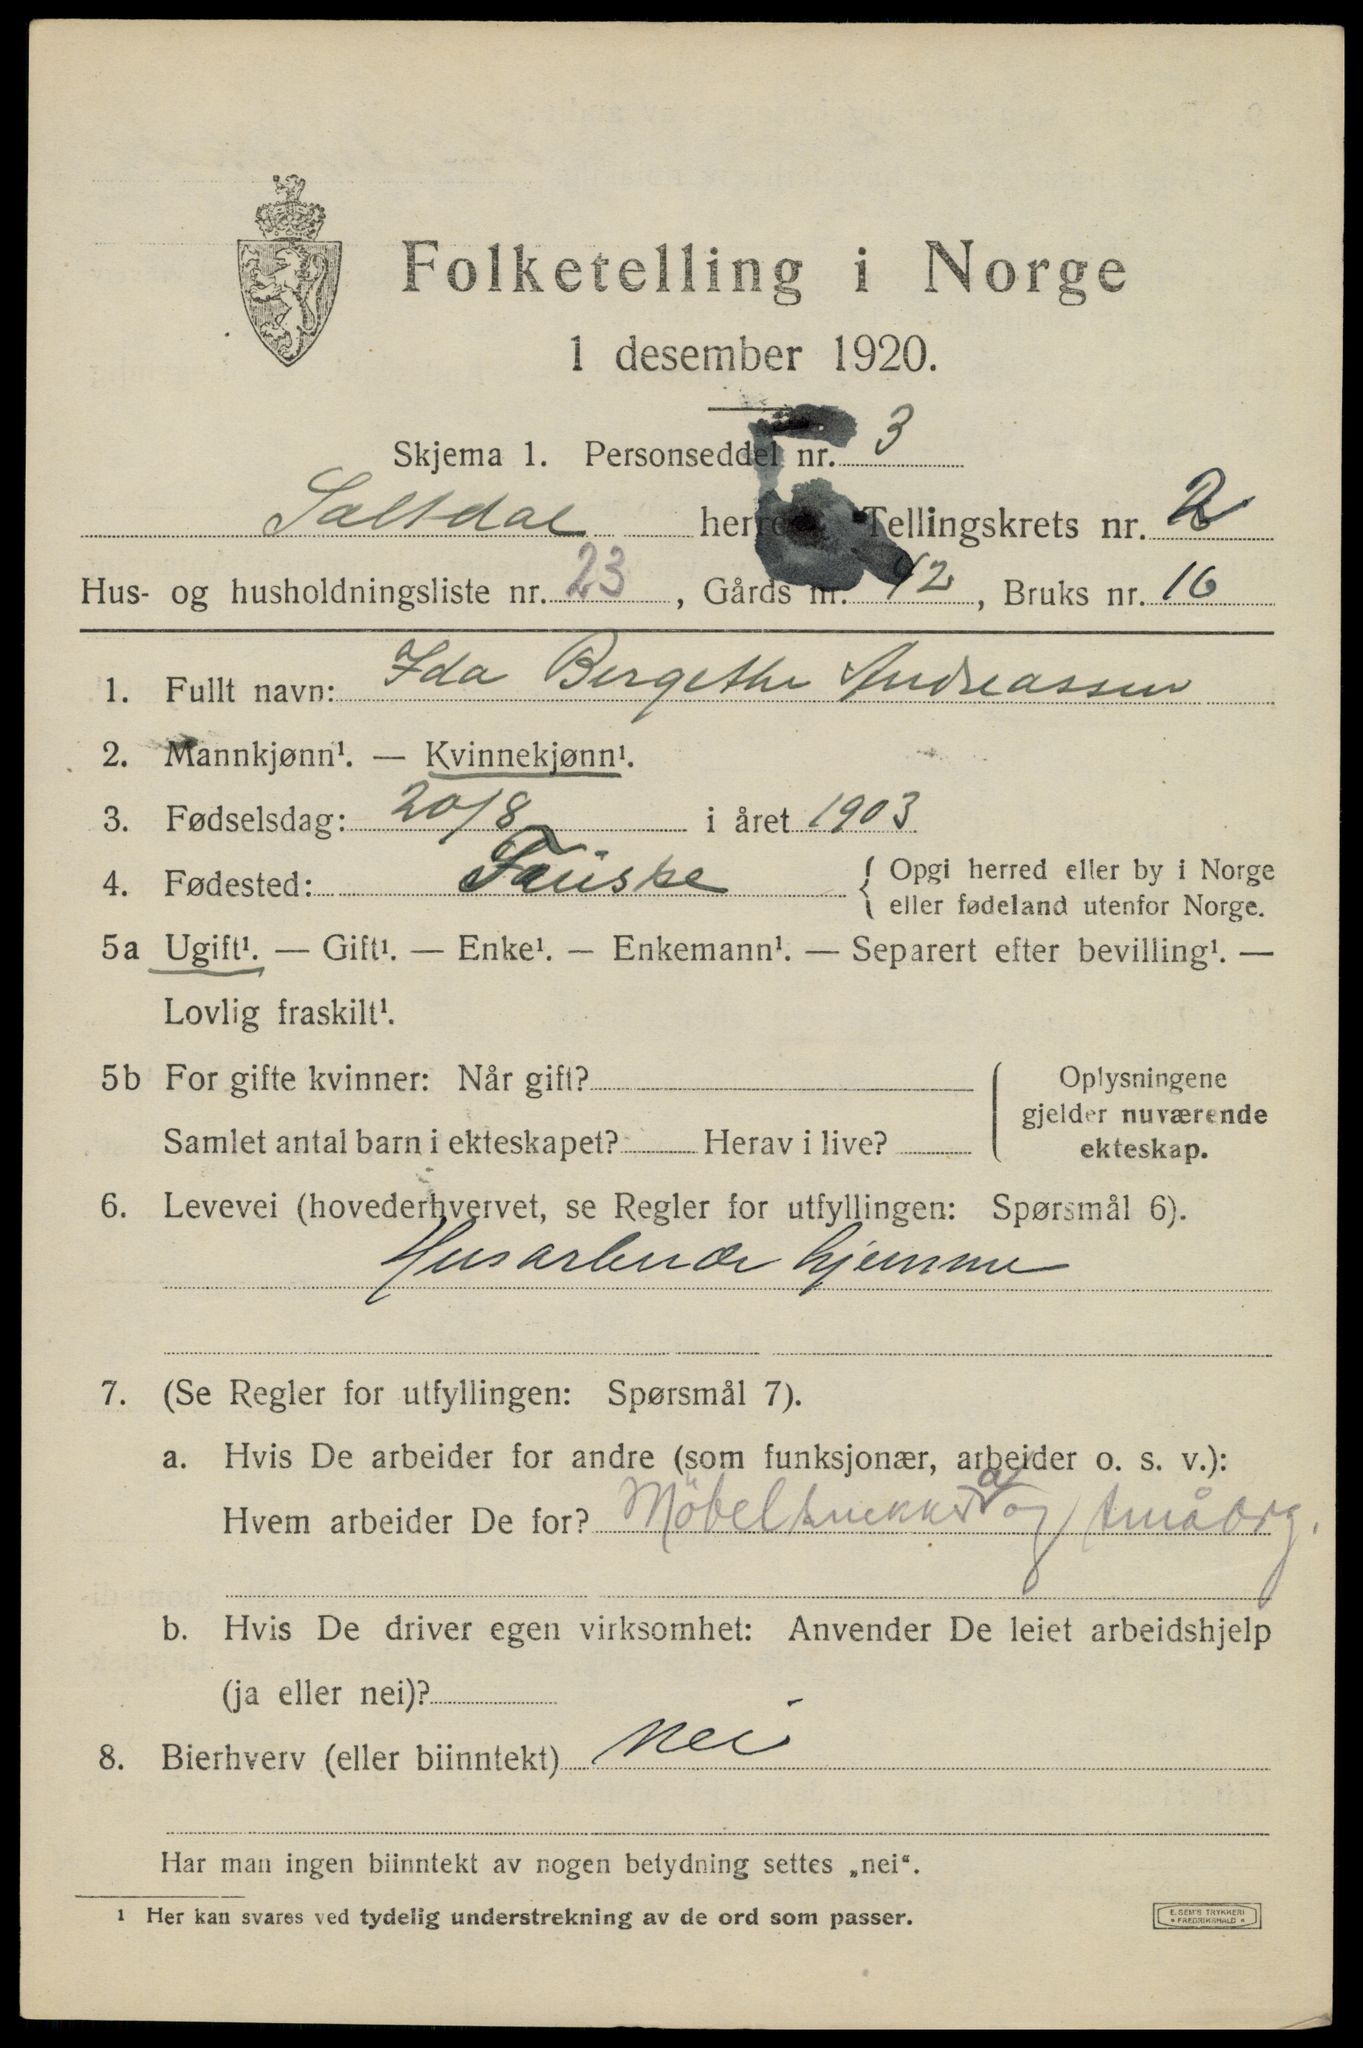 Folketelling i Norge
1 desember 1920.
Skjema 1. Personseddel nr. 3
Saltdal herred. Tellingskrets nr. 2
Hus- og husholdningsliste nr. 23, Gårds nr. 42, Bruks nr. 16
1. Fullt navn: Ida Bergethe Andreassen
2. Mannkjønn¹. — Kvinnekjønn¹.
3. Fødselsdag: 20/8 i året 1903
4. Fødested: Fauske { Opgi herred eller by i Norge
eller fødeland utenfor Norge.
5a Ugift¹. — Gift¹. — Enke¹. — Enkemann¹. — Separert efter bevilling¹. —
Lovlig fraskilt¹.
5b For gifte kvinner: Når gift? { Oplysningene
gjelder nuværende
Samlet antal barn i ekteskapet? Herav i live?
ekteskap.
6. Levevei (hovederhvervet, se Regler for utfyllingen: Spørsmål 6).
Husarbeide hjemme
7. (Se Regler for utfyllingen: Spørsmål 7).
a. Hvis De arbeider for andre (som funksjonær, arbeider o. s. v.):
Hvem arbeider De for? Möbelsnekker og småbrg.
b. Hvis De driver egen virksomhet: Anvender De leiet arbeidshjelp
(ja eller nei)?
8. Bierhverv (eller biinntekt) nei
Har man ingen biinntekt av nogen betydning settes „nei“.
¹ Her kan svares ved tydelig understrekning av de ord som passer.
E. SEM'S TRYKKERI
* FREDRIKSHALD *